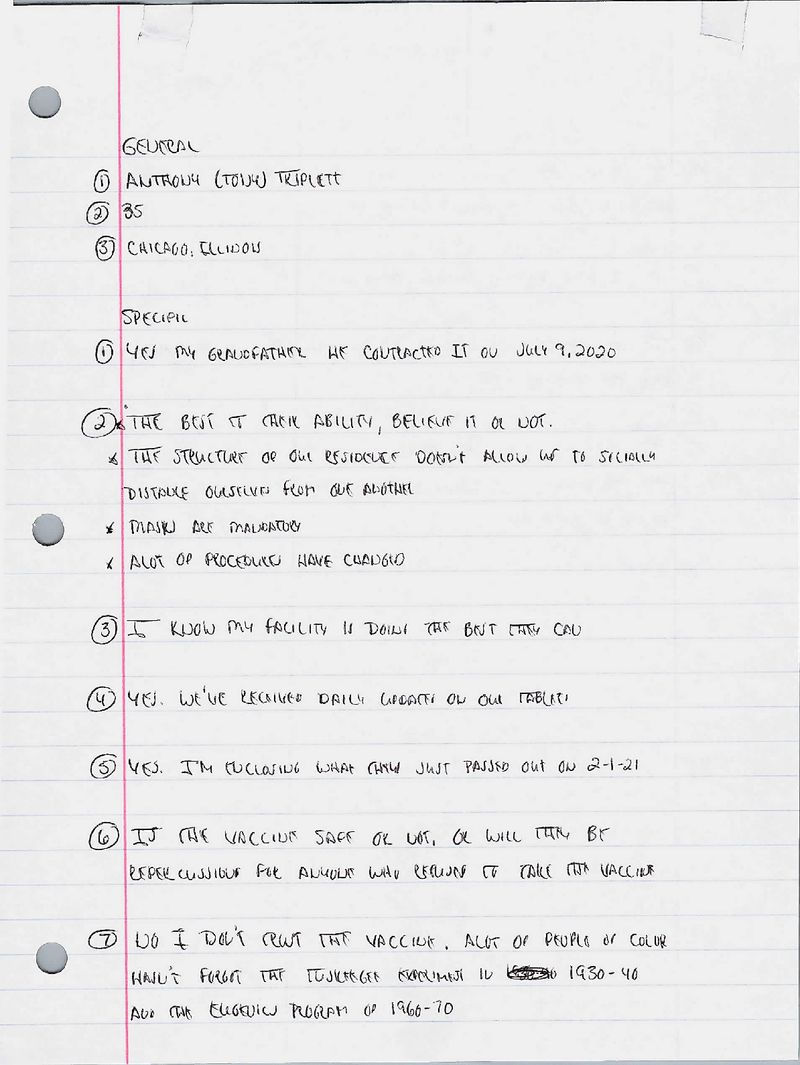 GENERAL
① ANTHONY (TONY) TRIPLETT
② 35
③ CHICAGO, ILLINOIS
SPECIFIC
① YES MY GRANDFATHER HE CONTRACTED IT ON JULY 9, 2020
② * THE BEST IT THEIR ABILITY, BELIEVE IT OR NOT.
* THE STRUCTURE OF OUR RESIDENCE DOESN'T ALLOW US TO SOCIALLY
DISTANCE OURSELVES FROM ONE ANOTHER
* MASKS ARE MANDATORY
* ALOT OF PROCEDURES HAVE CHANGED
③ I KNOW MY FACILITY IS DOING THE BEST THEY CAN
④ YES. WE'VE RECEIVED DAILY UPDATES ON OUR TABLETS
⑤ YES. I'M ENCLOSING WHAT THEY JUST PASSED OUT ON 2-1-21
⑥ IS THE VACCINE SAFE OR NOT, OR WILL THEY BE
REPERCUSSIONS FOR ANYONE WHO REFUSES TO TAKE THE VACCINE
⑦ NO I DON'T TRUST THE VACCINE. ALOT OF PEOPLE OF COLOR
HASN'T FORGOT THE TUSKEEGEE EXPERIMENT IN 1930-40
AND THE EUGENICS PROGRAM OF 1960-70